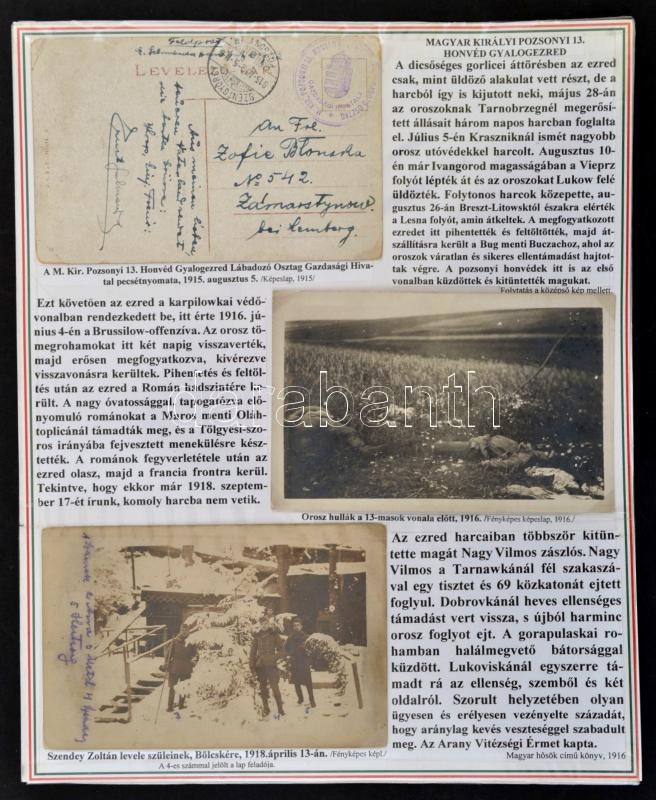 MAGYAR KIRÁLYI POZSONYI 13.
HONVÉD GYALOGEZRED
A dicsőséges gorlicei áttörésben az ezred
csak, mint üldöző alakulat vett részt, de a
harcból így is kijutott neki, május 28-án
az oroszoknak Tarnobrzegnél megerősí-
tett állásait három napos harcban foglalta
el. Július 5-én Kraszniknál ismét nagyobb
orosz utóvédekkel harcolt. Augusztus 10-
én már Ivangorod magasságában a Vieprz
folyót lépték át és az oroszokat Lukow felé
üldözték. Folytonos harcok közepette, au-
gusztus 26-án Breszt-Litowsktól északra elérték
a Lesna folyót, amin átkeltek. A megfogyatkozott
ezredet itt pihentették és feltöltötték, majd át-
szállításra került a Bug menti Buczachoz, ahol az
oroszok váratlan és sikeres ellentámadást hajtot-
tak végre. A pozsonyi honvédek itt is az első
vonalban küzdöttek és kitüntették magukat.
Folytatás a középső kép mellett.
Feldpost
LEVELEZŐ
An Frl.
Zofie Błonska
No 542.
Zámarstynow
bei Lemberg.
A M. Kir. Pozsonyi 13. Honvéd Gyalogezred Lábadozó Osztag Gazdasági Hiva-
tal pecsétnyomata, 1915. augusztus 5. /Képeslap, 1915/
Ezt követően az ezred a karpilowkai védő-
vonalban rendezkedett be, itt érte 1916. jú-
nius 4-én a Brussilow-offenzíva. Az orosz tö-
megrohamokat itt két napig visszaverték,
majd erősen megfogyatkozva, kivérezve
visszavonásra kerültek. Pihentetés és feltöl-
tés után az ezred a Román hadszíntére ke-
rült. A nagy óvatossággal, tapogatózva elő-
nyomuló románokat a Maros menti Oláh-
toplicánál támadták meg, és a Tölgyesi-szo-
ros irányába fejvesztett menekülésre kész-
tették. A románok fegyverletétele után az
ezred olasz, majd a francia frontra kerül.
Tekintve, hogy ekkor már 1918. szeptem-
ber 17-ét írunk, komoly harcba nem vetik.
darabanth
Orosz hullák a 13-masok vonala előtt, 1916. /Fényképes képeslap, 1916./
Az ezred harcaiban többször kitün-
tette magát Nagy Vilmos zászlós. Nagy
Vilmos a Tarnawkánál fél szakaszá-
val egy tisztet és 69 közkatonát ejtett
foglyul. Dobrovkánál heves ellenséges
támadást vert vissza, s újból harminc
orosz foglyot ejt. A gorapulaskai ro-
hamban halálmegvető bátorsággal
küzdött. Lukoviskánál egyszerre tá-
madt rá az ellenség, szemből és két
oldalról. Szorult helyzetében olyan
ügyesen és erélyesen vezényelte századát,
hogy aránylag kevés veszteséggel szabadult
meg. Az Arany Vitézségi Érmet kapta.
Magyar hősök című könyv, 1916
Szendey Zoltán levele szüleinek, Bölcskére, 1918.április 13-án. /Fényképes képl./
A 4-es számmal jelölt a lap feladója.